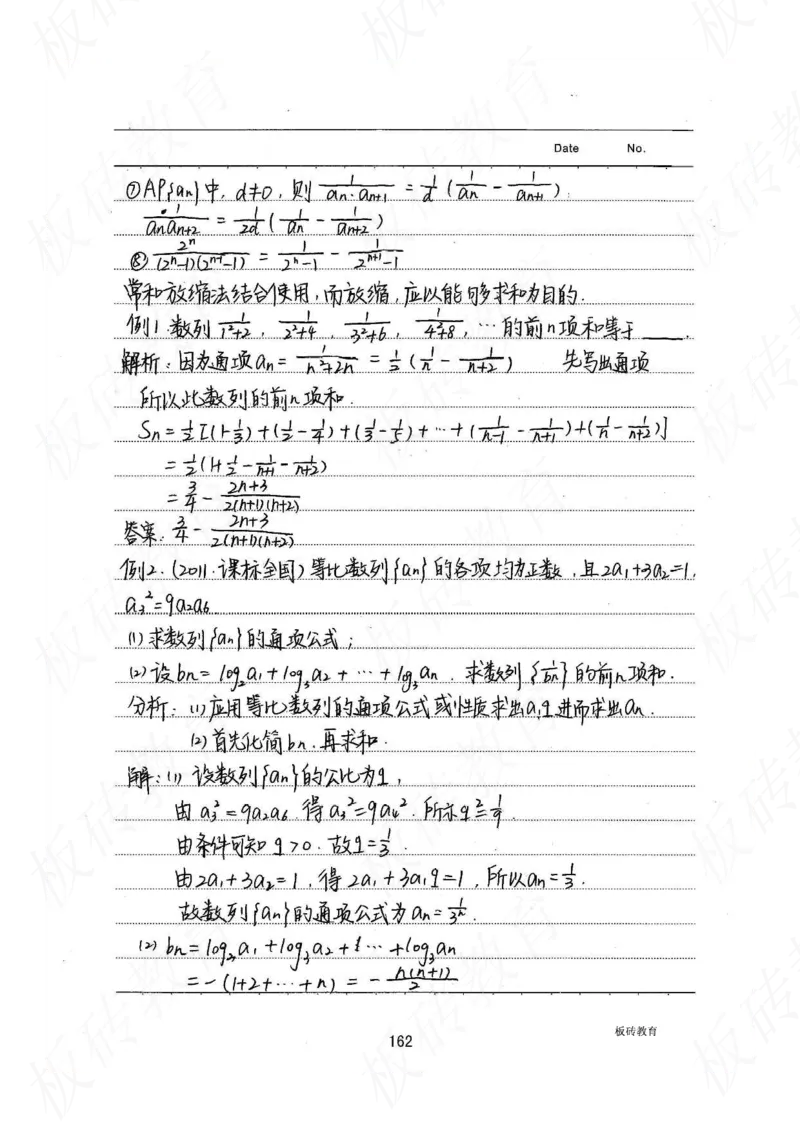 Date No.
⑦AP{an}中，d≠0，则 1/(an·an+1) = 1/d (1/an - 1/an+1)；
1/(an an+2) = 1/2d (1/an - 1/an+2)
⑧ 2^n/((2^n-1)(2^(n+1)-1)) = 1/(2^n-1) - 1/(2^(n+1)-1)
常和放缩法结合使用，而放缩，应以能够求和为目的．
例1．数列 1/(1²+2)，1/(2²+4)，1/(3²+6)，1/(4²+8)，…的前n项和等于____．
解析：因为通项an = 1/(n²+2n) = 1/2 (1/n - 1/(n+2)) 先写出通项
所以此数列的前n项和．
Sn = 1/2 [(1-1/3)+(1/2-1/4)+(1/3-1/5)+…+(1/(n-1) - 1/(n+1))+(1/n - 1/(n+2))]
= 1/2 (1+1/2 - 1/(n+1) - 1/(n+2))
= 3/4 - (2n+3)/(2(n+1)(n+2))
答案：3/4 - (2n+3)/(2(n+1)(n+2))
例2．(2011·课标全国) 等比数列{an}的各项均为正数，且2a₁+3a₂=1，
a₃²=9a₂a₆．
(1) 求数列{an}的通项公式；
(2) 设bn = log₂a₁+log₃a₂+…+log₃an．求数列{1/bn}的前n项和．
分析：(1) 应用等比数列的通项公式或性质求出a₁q进而求出an．
(2) 首先化简bn．再求和．
解：(1) 设数列{an}的公比为q，
由a₃²=9a₂a₆．得a₃²=9a₄²．所以q²=1/9．
由条件可知q>0．故q=1/3．
由2a₁+3a₂=1，得2a₁+3a₁q=1，所以an=1/3．
故数列{an}的通项公式为an=1/3^n．
(2) bn = log₂a₁+log₃a₂+…+log₃an
= -(1+2+…+n) = - n(n+1)/2
板砖教育
162